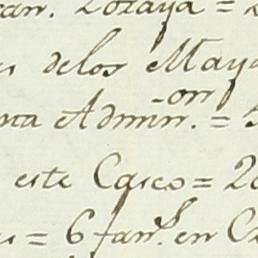 Lozaya =
delos May
Admin.on =
este Casco = 20
= 6 fan.s en